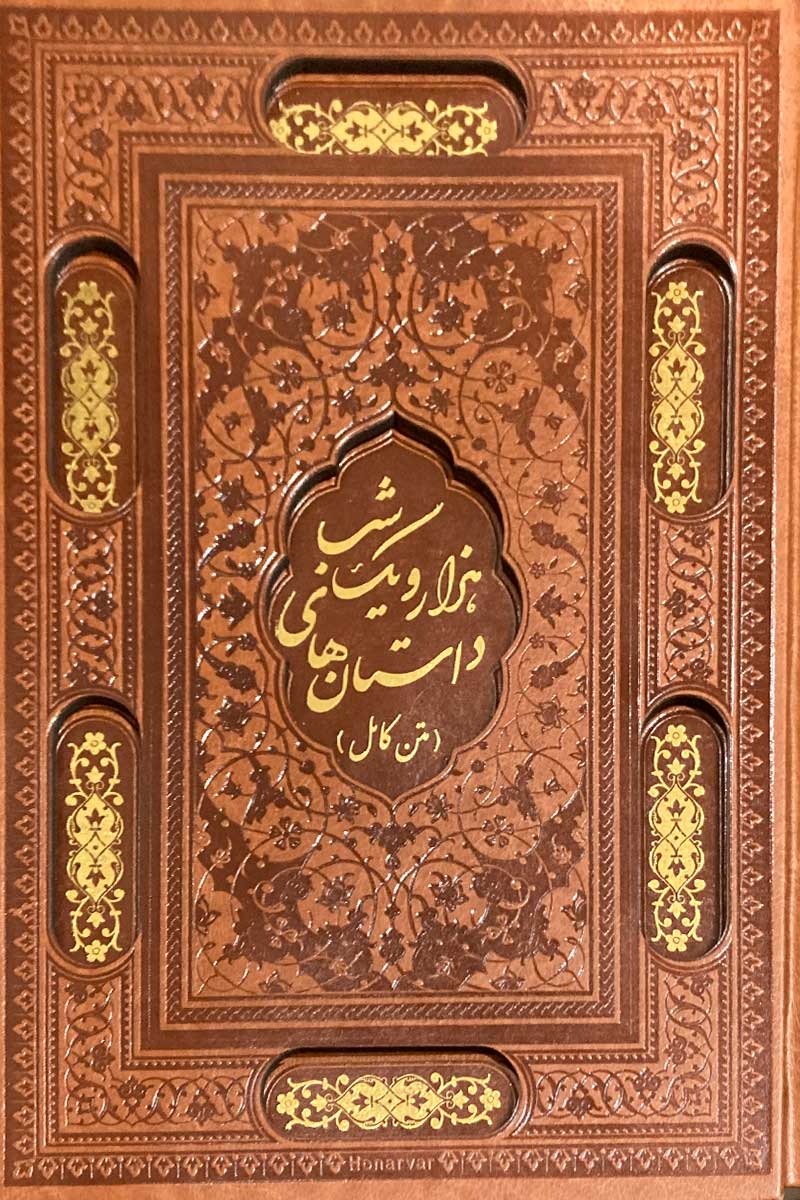 داستان‌های
هزار و یک شب
(متن کامل)
Honarvar